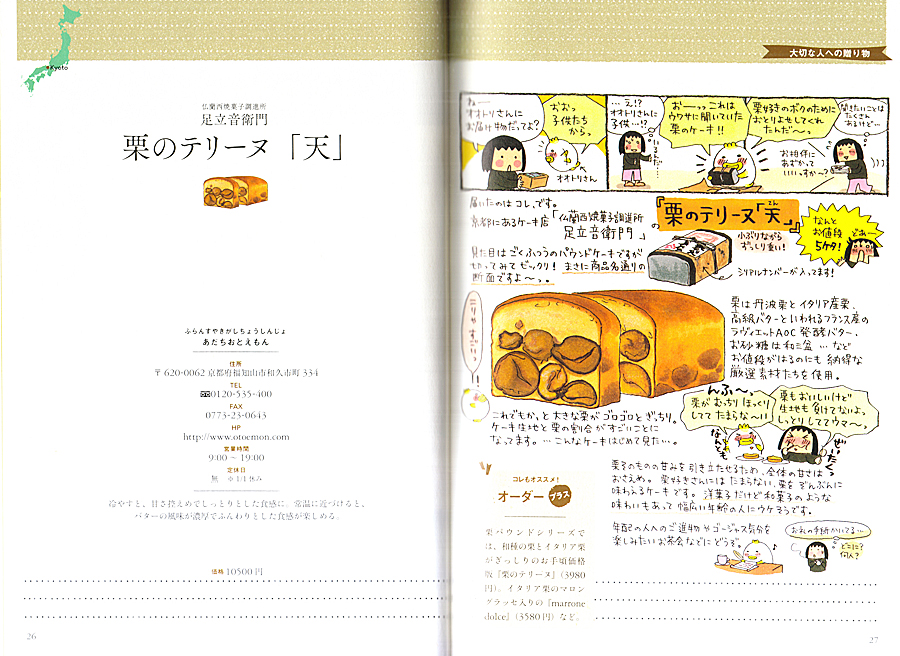 Kyoto
仏蘭西焼菓子調進所
足立音衛門
栗のテリーヌ「天」
ふらんすやきがしちょうしんじょ
あだちおとえもん
住所
〒620-0062 京都府福知山市和久市町 334
TEL
0120-535-400
FAX
0773-23-0643
HP
http://www.otoemon.com
営業時間
9:00 ~ 19:00
定休日
無 ※1/1休み
冷やすと、甘さ控えめでしっとりとした食感に。常温に近づけると、
バターの風味が濃厚でふんわりとした食感が楽しめる。
価格 10500円
26
大切な人への贈り物
ねー
オオトリさんに
お届け物だってよ?
おおっ
子供たち
からっ
オオトリさん
…え!?
オオトリさんに
子供…!?
いるんだ…
おーっっこれは
ウワサに聞いていた
栗のケーキ!!
栗好きのボクのために
おとりよせしてくれ
たんだ~っ
お相伴に
あずかって
いいっすか~?
聞きたいことは
たくさん
あるけど…
届いたのはコレ。です。
京都にあるケーキ店「仏蘭西焼菓子調進所
足立音衛門」の
『栗のテリーヌ「天」』
てん
なんと
お値段
5ケタ!
どあー
小ぶりながら
ずっしり重い!
シリアルナンバーが入ってます!
見た目はごくふつうのパウンドケーキですが
切ってみてビックリ! まさに商品名通りの
断面ですよ~っ。
栗は丹波栗とイタリア産栗、
高級バターといわれるフランス産の
ラヴィエットAOC発酵バター、
お砂糖は和三盆…など
お値段がはるのにも納得な
厳選素材たちを使用。
これでもかっと大きな栗がゴロゴロとぎっちり。
ケーキ生地と栗の割合がすごいことに
なってます。…こんなケーキはじめて見た…。
んふ~っ
栗がむっちりほっくり
しててたまらな~い
栗もおいしいけど
生地も負けてないよ。
しっとりしててウマ~っ
なんとも
ぜいたく
栗そのものの甘みを引き立たせるため、全体の甘さは
おさえめ。栗好きさんにはたまらない、栗をぞんぶんに
味わえるケーキです。洋菓子だけど和菓子のような
味わいもあって幅広い年齢の人にウケそうです。
年配の人へのご進物やゴージャス気分を
楽しみたいお茶会などにどうぞ。
お礼の手紙かいてる…
どこに?
何人?
コレもオススメ!
オーダープラス
栗パウンドシリーズで
は、和種の栗とイタリア栗
がぎっしりのお手頃価格
版『栗のテリーヌ』(3980
円)、イタリア栗のマロン
グラッセ入りの『marrone
dolce』(3580円)など。
27